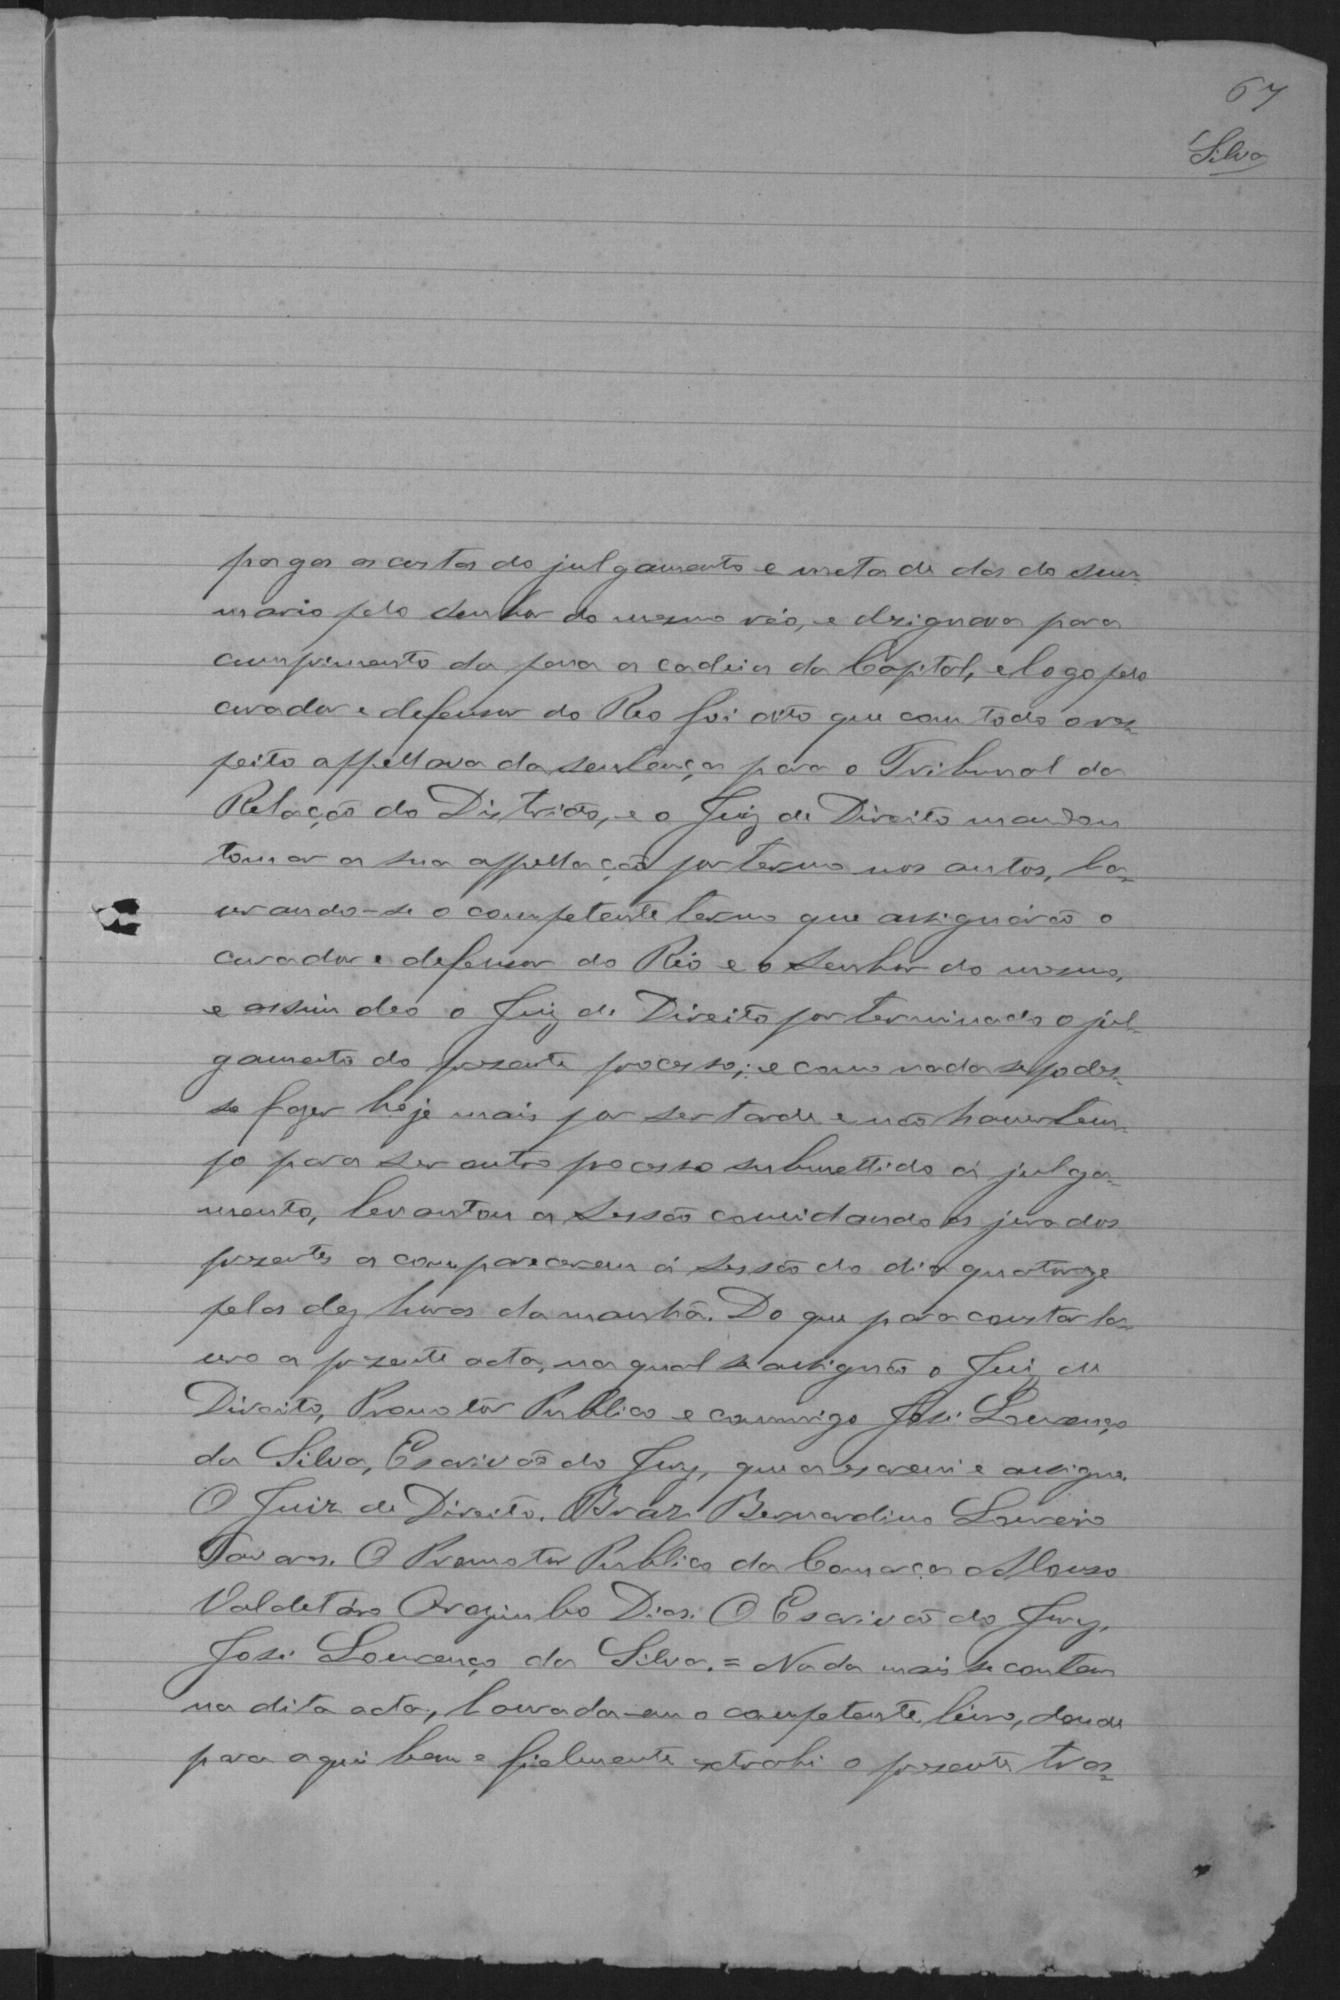 67
Silva
pagas as custas do julgamento e metade dás do sum-
mario pelo senhor do mesmo réo, e dezignava para
cumprimento da pena a cadeia da Capital, e logo pelo
curador e defensor do Reo foi dito que com todo o res-
peito appellava da sentença para o Tribunal da
Relação do Districto, e o Juiz de Direito mandou
tomar a sua appellação por termo nos autos, la-
vrando-se o competente termo que assignárão o
curador e defensor do Réo e o Senhor do mesmo,
e assim deo o Juiz de Direito por terminado o jul-
gamento do prezente processo; e como nada se podes-
se fazer hoje mais por ser tarde e não haver tem-
po para ser outro processo submettido a julga-
mento, levantou a Sessão convidando os jurados
prezentes a comparecerem á sessão do dia quatorze
pelas dez horas da manhã. Do que para constar la-
vro a prezente acta, na qual se assignão o Juiz de
Direito, Promotor Publico e commigo José Lourenço
da Silva, Escrivão do Jury, que a escrevi e assigno.
O Juiz de Direito. Braz Bernardino Loureiro
Tavares. O Promotor Publico da Comarca
Valdetáro Dias. O Escrivão do Jury,
José Lourenço da Silva. = Nada mais se contem
na dita acta, lavrada em o competente livro, donde
para aqui bem e fielmente extrahi o prezente tras-